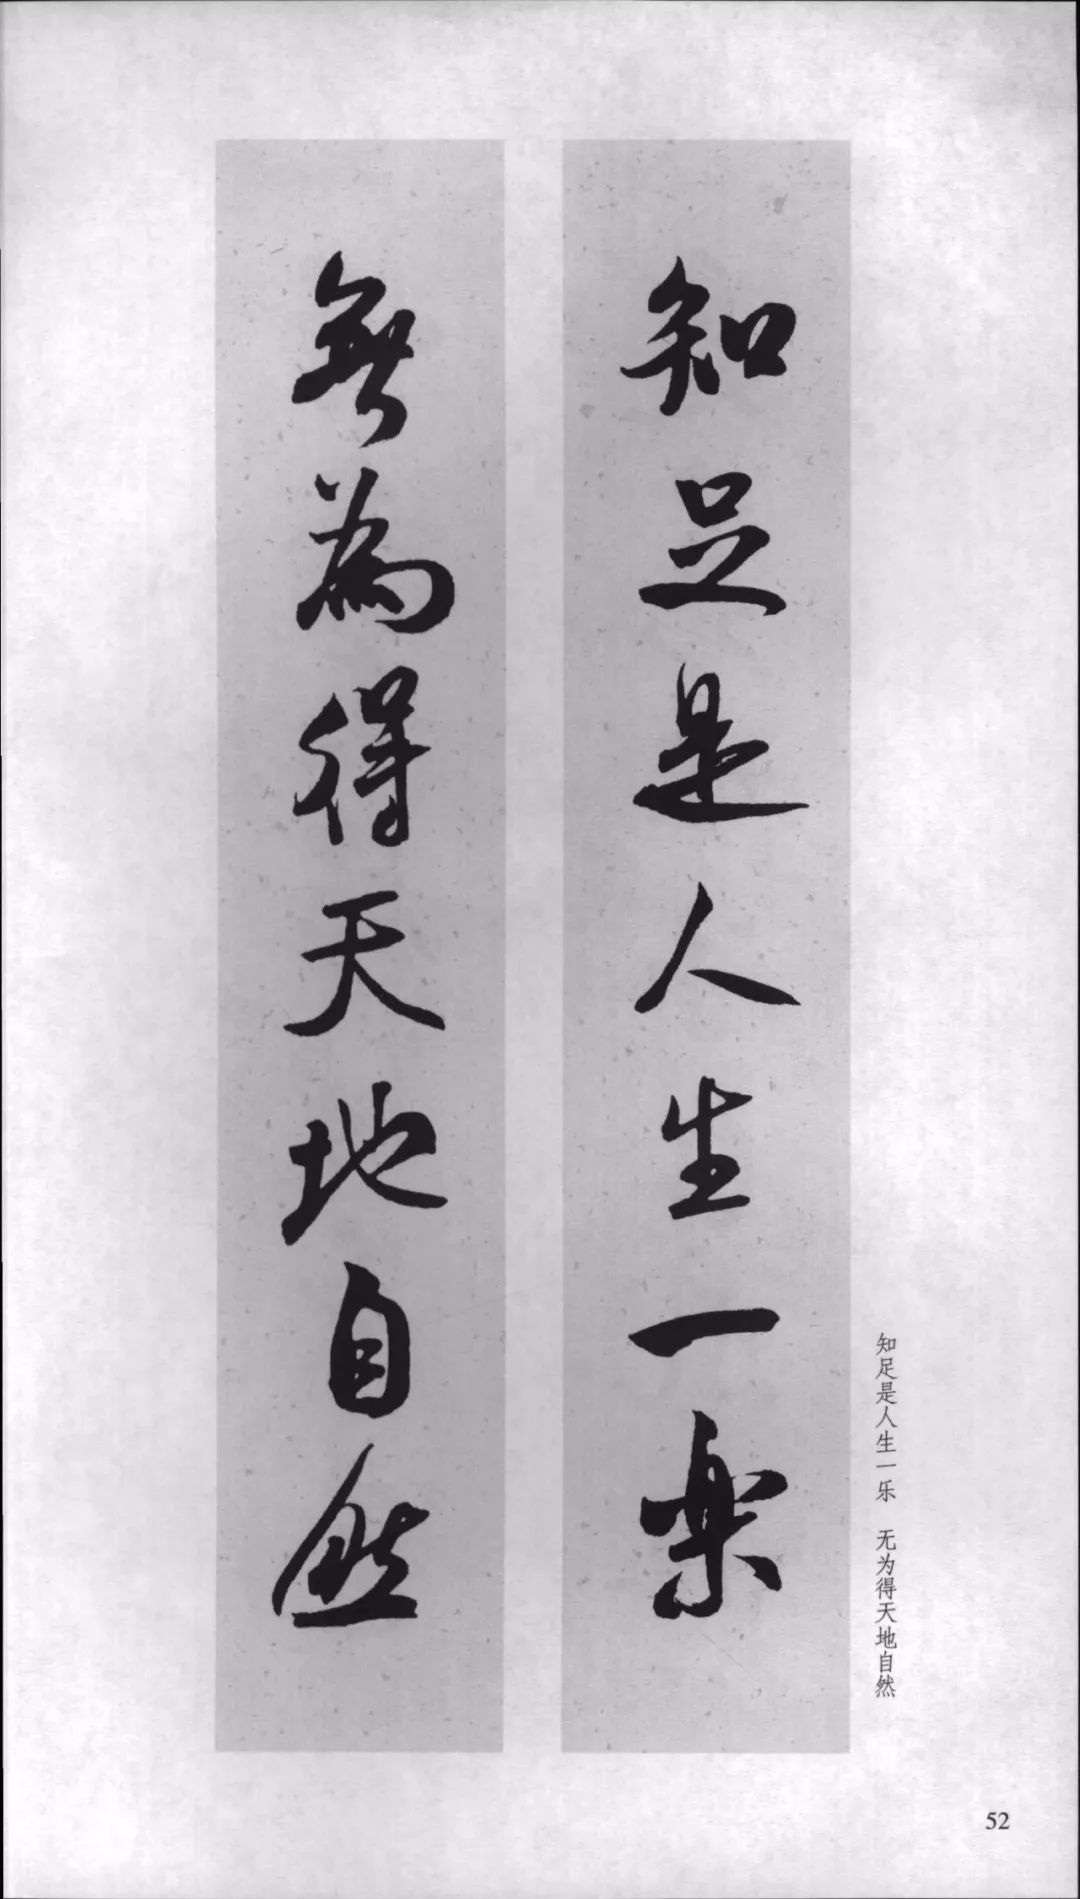 知足是人生一楽
無為得天地自然
知足是人生一乐 无为得天地自然
52